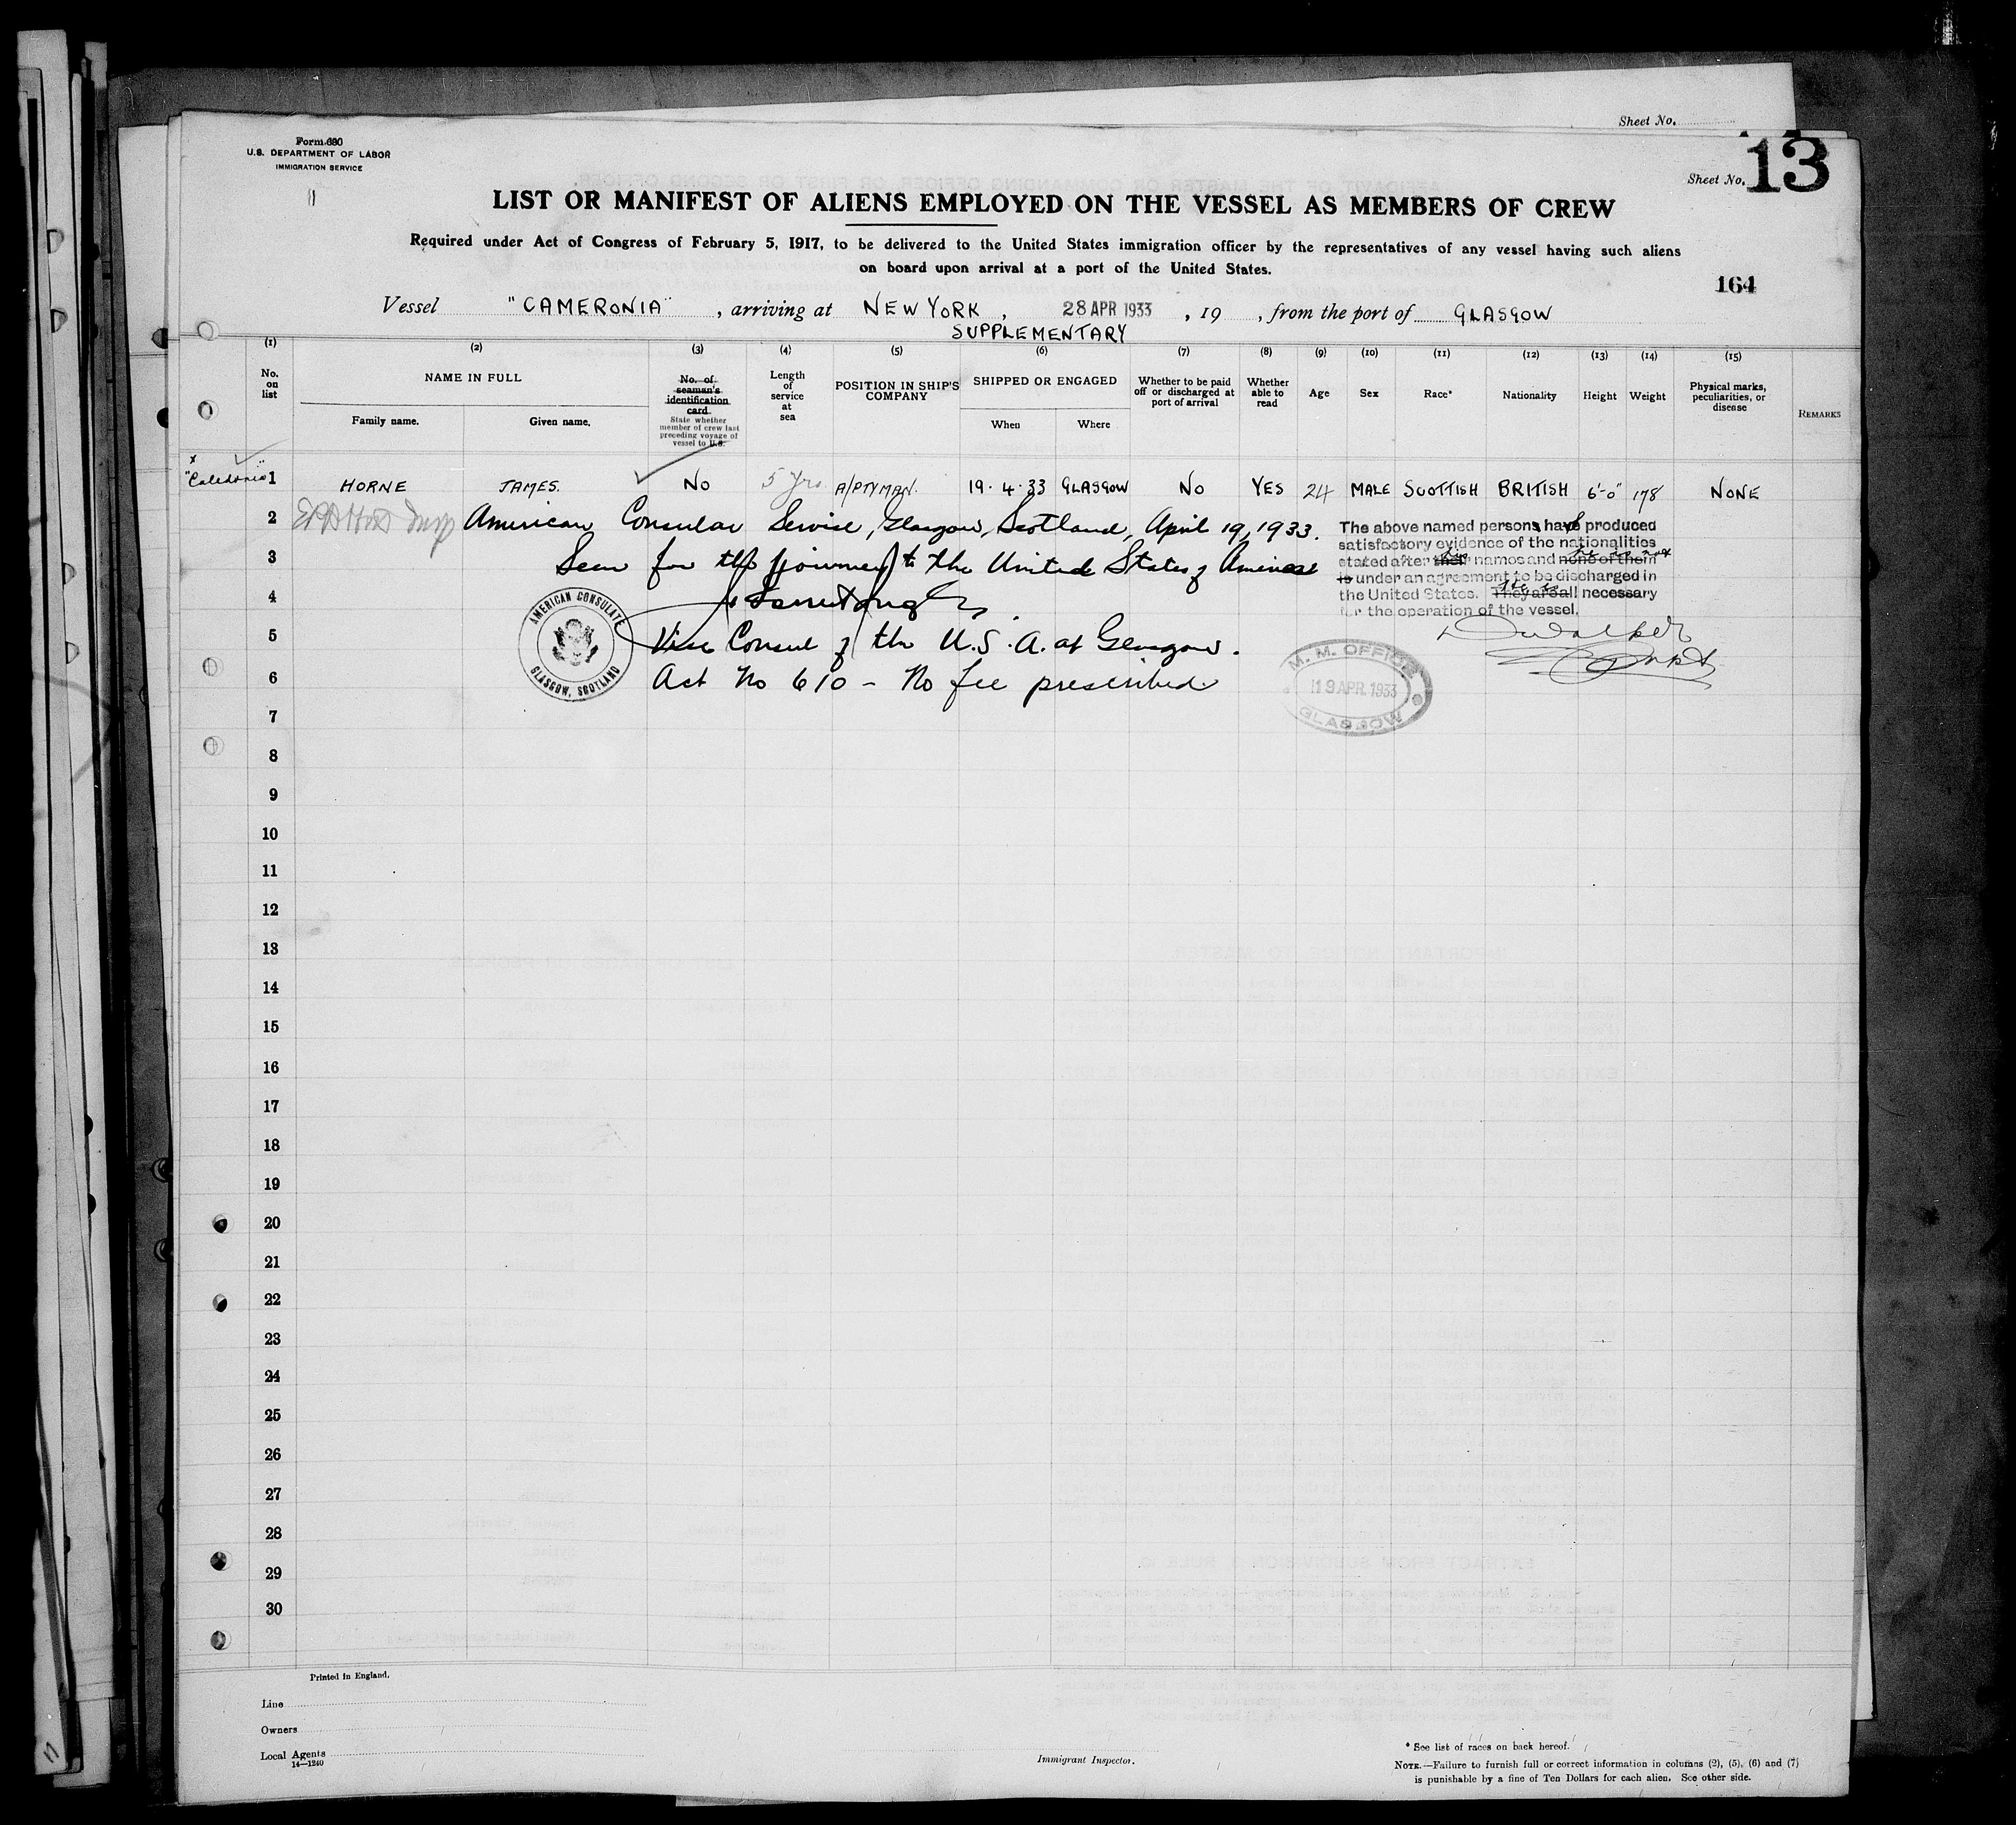 Sheet No.
Form 680
U.S. DEPARTMENT OF LABOR
IMMIGRATION SERVICE
Sheet No. 13
LIST OR MANIFEST OF ALIENS EMPLOYED ON THE VESSEL AS MEMBERS OF CREW
Required under Act of Congress of February 5, 1917, to be delivered to the United States immigration officer by the representatives of any vessel having such aliens
on board upon arrival at a port of the United States.
164
Vessel "CAMERONIA", arriving at NEW YORK, 28 APR 1933, 19 , from the port of GLASGOW
SUPPLEMENTARY
(1) (2) (3) (4) (5) (6) (7) (8) (9) (10) (11) (12) (13) (14) (15)
No. on list
NAME IN FULL
Family name. Given name.
No. of seaman's identification card.
State whether member of crew last preceding voyage of vessel to U.S.
Length of service at sea
POSITION IN SHIP'S COMPANY
SHIPPED OR ENGAGED
When Where
Whether to be paid off or discharged at port of arrival
Whether able to read
Age
Sex
Race*
Nationality
Height
Weight
Physical marks, peculiarities, or disease
REMARKS
"Caledonia" 1 HORNE JAMES. No 5 yrs A/PTYMAN. 19.4.33 GLASGOW No YES 24 MALE SCOTTISH BRITISH 6'-0" 178 NONE
2 American Consular Service, Glasgow, Scotland, April 19, 1933.
3 Seen for the journey to the United States of America
4
5 Vice Consul of the U.S.A. at Glasgow.
6 Act No 610 - No fee prescribed
The above named persons have produced
satisfactory evidence of the nationalities
stated after their names and none of them
his he is not
is under an agreement to be discharged in
the United States. They are all necessary
He is
for the operation of the vessel.
AMERICAN CONSULATE
GLASGOW, SCOTLAND
M. M. OFFICE
19 APR. 1933
GLASGOW
7
8
9
10
11
12
13
14
15
16
17
18
19
20
21
22
23
24
25
26
27
28
29
30
Printed in England.
Line
Owners
Local Agents
14—1240
Immigrant Inspector.
* See list of races on back hereof.
NOTE.—Failure to furnish full or correct information in columns (2), (5), (6) and (7)
is punishable by a fine of Ten Dollars for each alien. See other side.